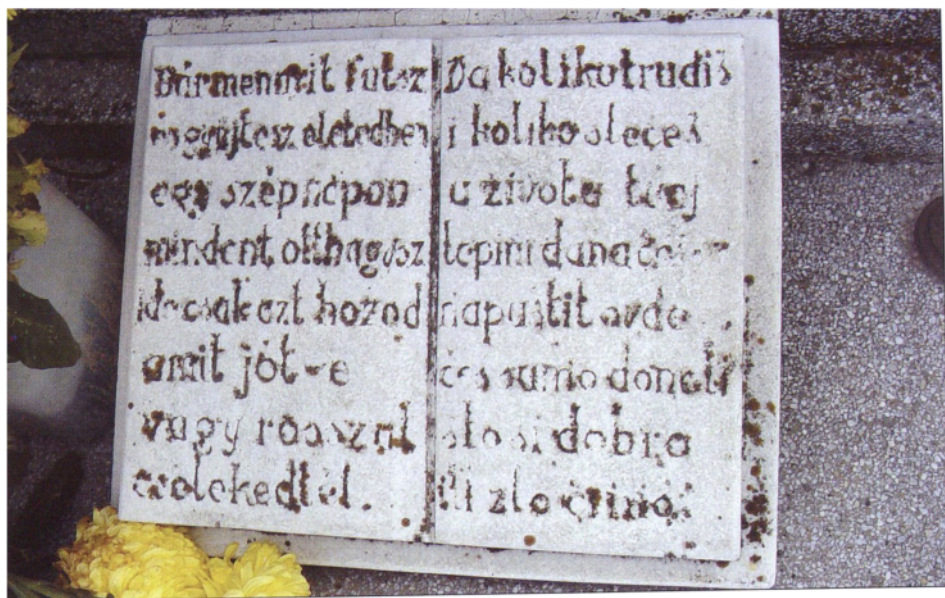 Bármennyit futsz
és gyűjtesz életedben
egy szép napon
mindent otthagysz
ide csak azt hozod
amit jót-e
vagy rosszat
cselekedtél.
Da koliko trudiš
i koliko stečeš
u životu tvoj
lepim dana ćeš
napustit ovde
ćeš samo doneti
što si dobro
ili zlo činio.